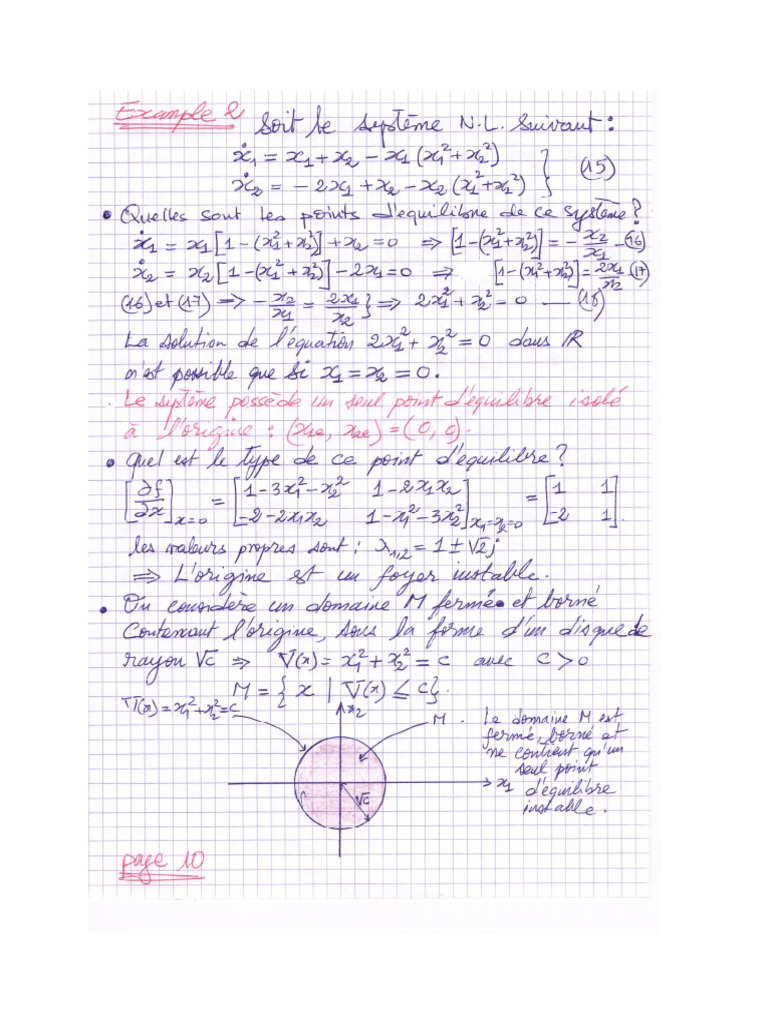 Example 2
Soit le système N.L. suivant :
ẋ1 = x1 + x2 − x1 (x1² + x2²)
ẋ2 = −2x1 + x2 − x2 (x1² + x2²) } (15)
• Quelles sont les points d'equilibre de ce système ?
ẋ1 = x1 [1 − (x1² + x2²)] + x2 = 0 ⇒ [1 − (x1² + x2²)] = − x2/x1 — (16)
ẋ2 = x2 [1 − (x1² + x2²)] − 2x1 = 0 ⇒ [1 − (x1² + x2²)] = 2x1/x2 — (17)
(16) et (17) ⇒ − x2/x1 = 2x1/x2 } ⇒ 2x1² + x2² = 0 — (18)
La solution de l'équation 2x1² + x2² = 0 dans ℝ
n'est possible que si x1 = x2 = 0.
Le système possède un seul point d'équilibre isolé
à l'origine : (x1e, x2e) = (0, 0).
• Quel est le type de ce point d'équilibre ?
[∂f/∂x]x=0 = [1 − 3x1² − x2² 1 − 2x1x2
−2 − 2x1x2 1 − x1² − 3x2²]x1=x2=0 = [1 1
−2 1].
les valeurs propres sont : λ1,2 = 1 ± √2 j
⇒ L'origine est un foyer instable.
• On considère un domaine M fermé et borné
Contenant l'origine, sous la forme d'un disque de
rayon √c ⇒ V(x) = x1² + x2² = c avec c > 0
M = { x | V(x) ≤ c }.
V(x) = x1² + x2² = c
x2
M.
Le domaine M est
fermé, borné et
ne contient qu'un
seul point
d'équilibre
instable.
x1
√c
page 10